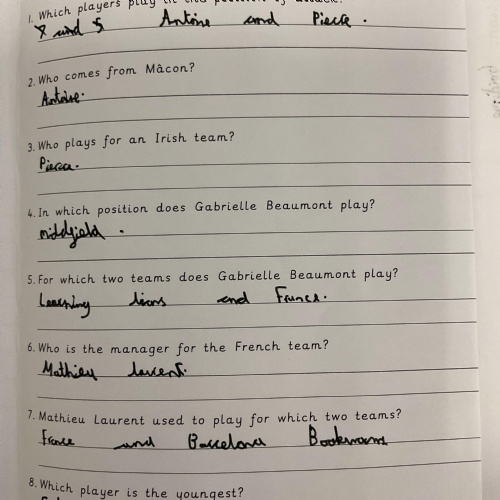 1. Which players play in the position of attack?
8 and 5 Antoine and Pierre.
2. Who comes from Mâcon?
Antoine.
3. Who plays for an Irish team?
Pierre.
4. In which position does Gabrielle Beaumont play?
middfield.
5. For which two teams does Gabrielle Beaumont play?
Learning lions and France.
6. Who is the manager for the French team?
Mathieu laurent.
7. Mathieu Laurent used to play for which two teams?
France and Barcelona Bookworms
8. Which player is the youngest?